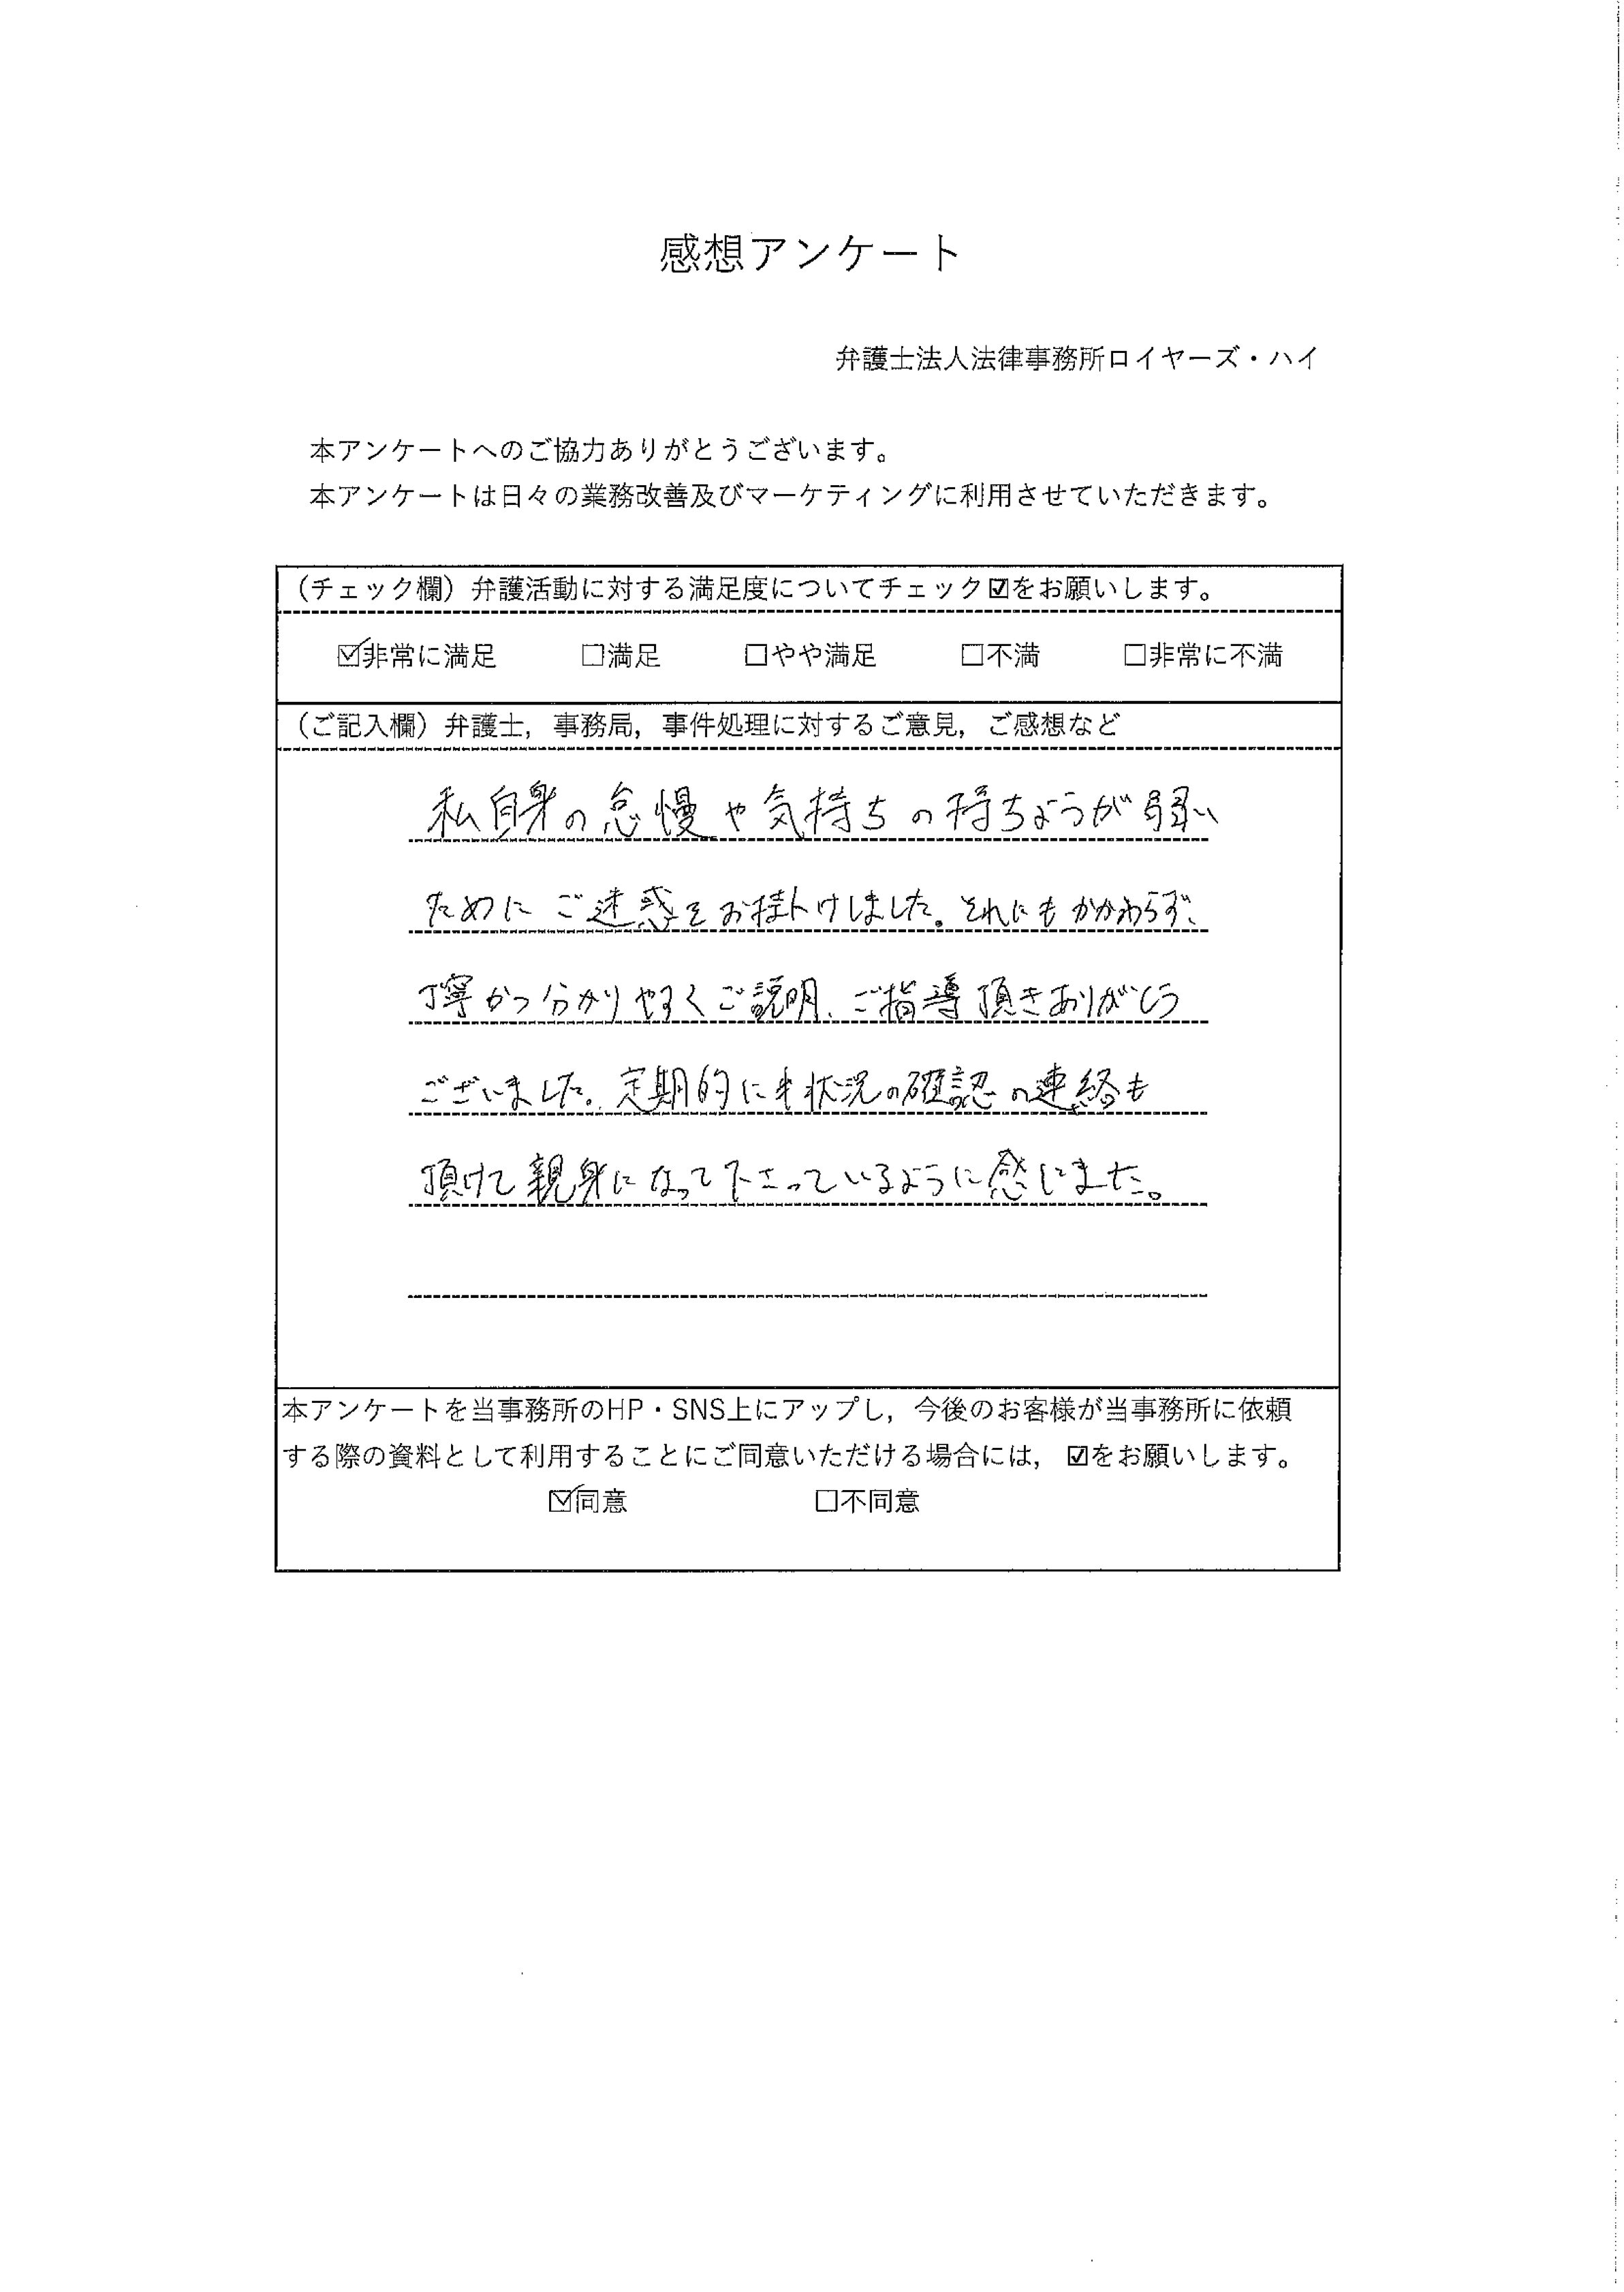 感想アンケート
弁護士法人法律事務所ロイヤーズ・ハイ
本アンケートへのご協力ありがとうございます。
本アンケートは日々の業務改善及びマーケティングに利用させていただきます。
（チェック欄）弁護活動に対する満足度についてチェック☑をお願いします。
☑非常に満足 □満足 □やや満足 □不満 □非常に不満
（ご記入欄）弁護士，事務局，事件処理に対するご意見，ご感想など
私自身の怠慢や気持ちの持ちようが弱い
ためにご迷惑をお掛けしました。それにもかかわらず、
丁寧かつ分かりやすくご説明、ご指導頂きありがとう
ございました。定期的に状況の確認の連絡も
頂けて親身になって下さっているように感じました。
本アンケートを当事務所のHP・SNS上にアップし，今後のお客様が当事務所に依頼
する際の資料として利用することにご同意いただける場合には，☑をお願いします。
☑同意 □不同意